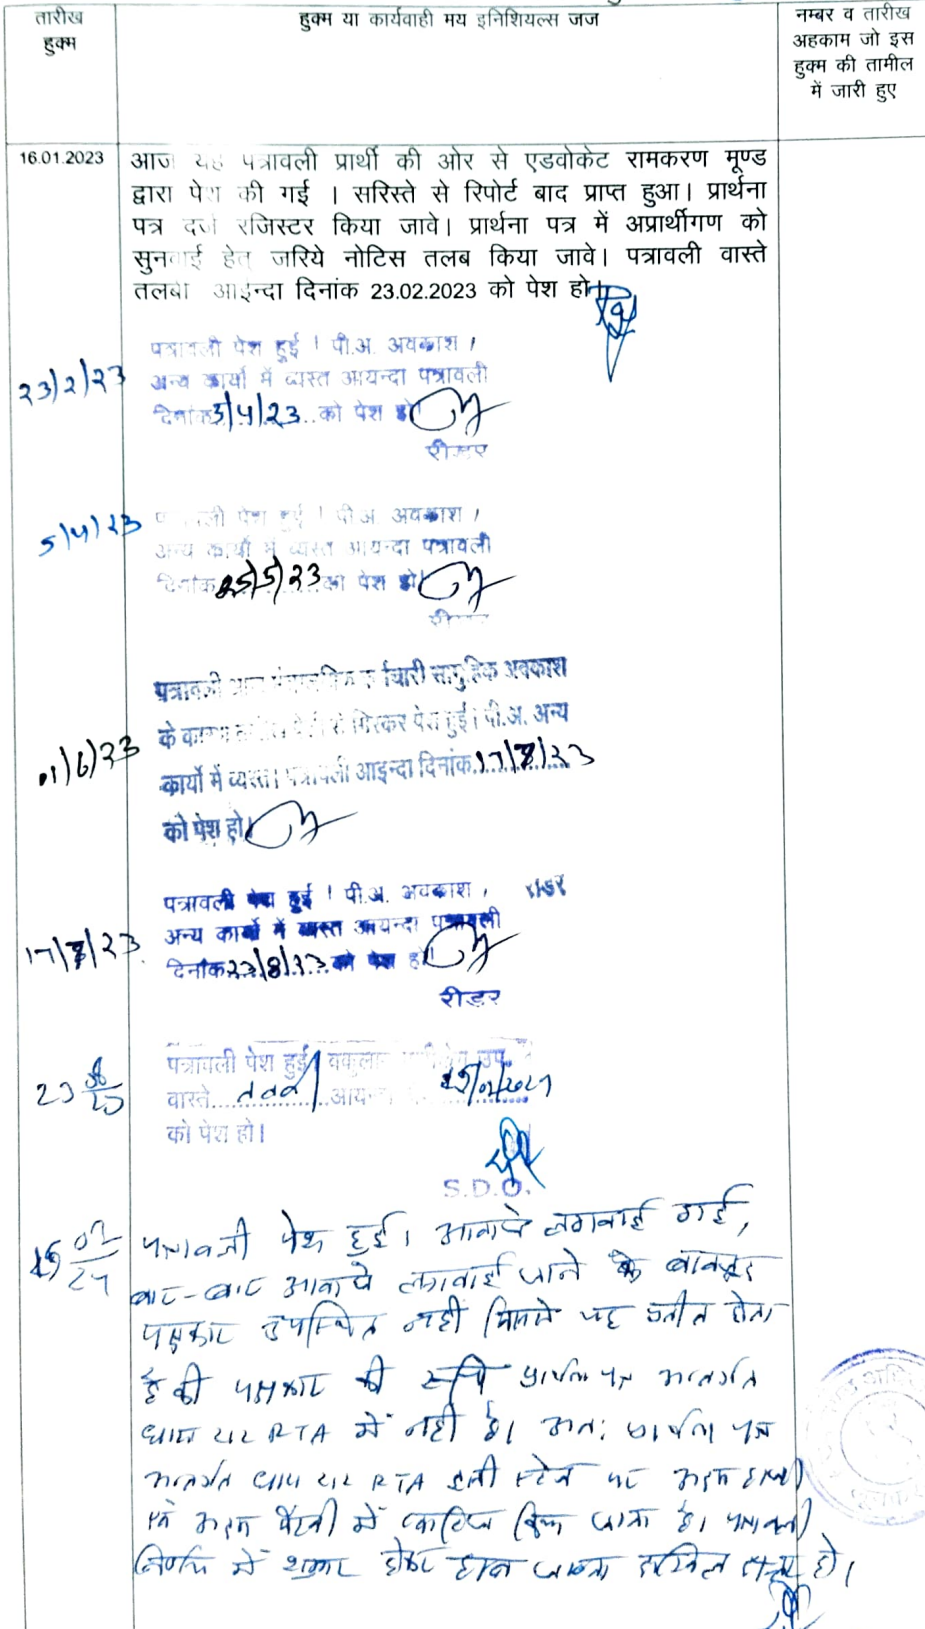 तारीख
हुक्म
हुक्म या कार्यवाही मय इनिशियल्स जज
नम्बर व तारीख
अहकाम जो इस
हुक्म की तामील
में जारी हुए
16.01.2023
आज यह पत्रावली प्रार्थी की ओर से एडवोकेट रामकरण मूण्ड
द्वारा पेश की गई । सरिस्ते से रिपोर्ट बाद प्राप्त हुआ। प्रार्थना
पत्र दर्ज रजिस्टर किया जावे। प्रार्थना पत्र में अप्रार्थीगण को
सुनवाई हेतु जरिये नोटिस तलब किया जावे। पत्रावली वास्ते
तलबी आईन्दा दिनांक 23.02.2023 को पेश हो।
23/2/23
पत्रावली पेश हुई । पी.अ. अवकाश,
अन्य कार्यो में व्यस्त आयन्दा पत्रावली
दिनांक 5/4/23 को पेश हो।
रीडर
5/4/23
पत्रावली पेश हुई । पी.अ. अवकाश,
अन्य कार्यो में व्यस्त आयन्दा पत्रावली
दिनांक 25/5/23 को पेश हो।
रीडर
01/6/23
पत्रावली आज कर्मचारी सामुहिक अवकाश
के कारण से गिरकर पेश हुई। पी.अ. अन्य
कार्यो में व्यस्त। पत्रावली आइन्दा दिनांक 17/8/23
को पेश हो।
17/8/23
पत्रावली पेश हुई । पी.अ. अवकाश,
रीडर
अन्य कार्यो में व्यस्त आयन्दा पत्रावली
दिनांक 23/8/23 को पेश हो।
रीडर
23 08/23
पत्रावली पेश हुई। वकुला उप.
वास्ते तलबी आयन्दा
को पेश हो।
S.D.O.
02/24
पत्रावली पेश हुई। आवाजे लगवाई गई,
बार-बार आवाजे लगवाई जाने के बावजूद
पक्षकार उपस्थित नही जिससे यह प्रतीत होता
है की पक्षकार की रूचि प्रार्थना पत्र अन्तर्गत
धारा 212 RTA में नही है। अतः प्रार्थना पत्र
अन्तर्गत धारा 212 RTA इसी स्टेज पर अदम हाजरी
एवं अदम पैरवी में खारिज किया जाता है। पत्रावली
निर्णय में शुमार होकर दाखिल दफ्तर हो।